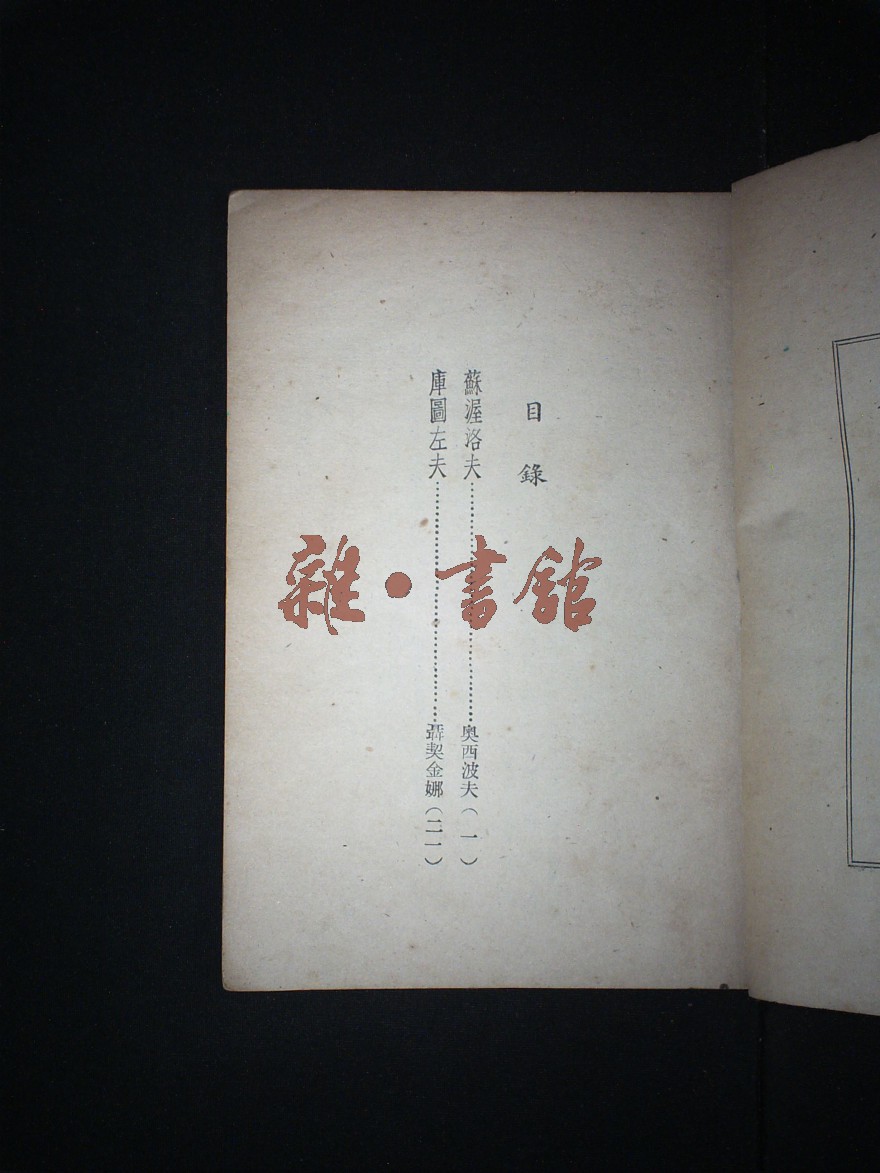 目錄
蘇渥洛夫……………………奧西波夫(一)
庫圖左夫……………………聶契金娜(二一)
雜·書館